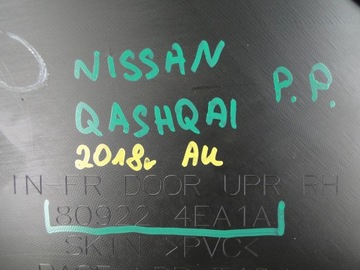 NISSAN
QASHQAI P.P.
2018r AU
IN-FR DOOR UPR RH
80922 4EA1A
SKIN >PVC<